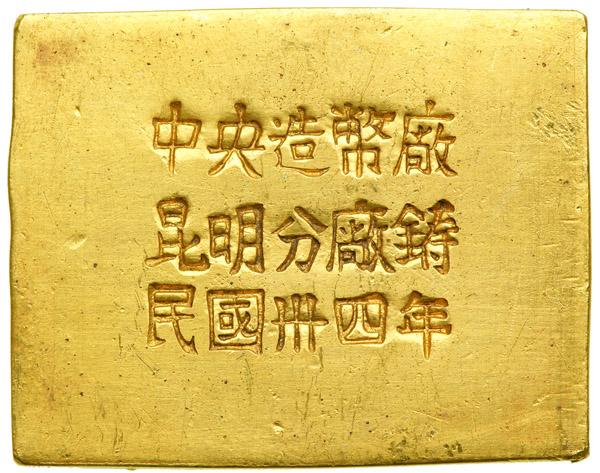 中央造幣廠
昆明分廠鋳
民國卅四年